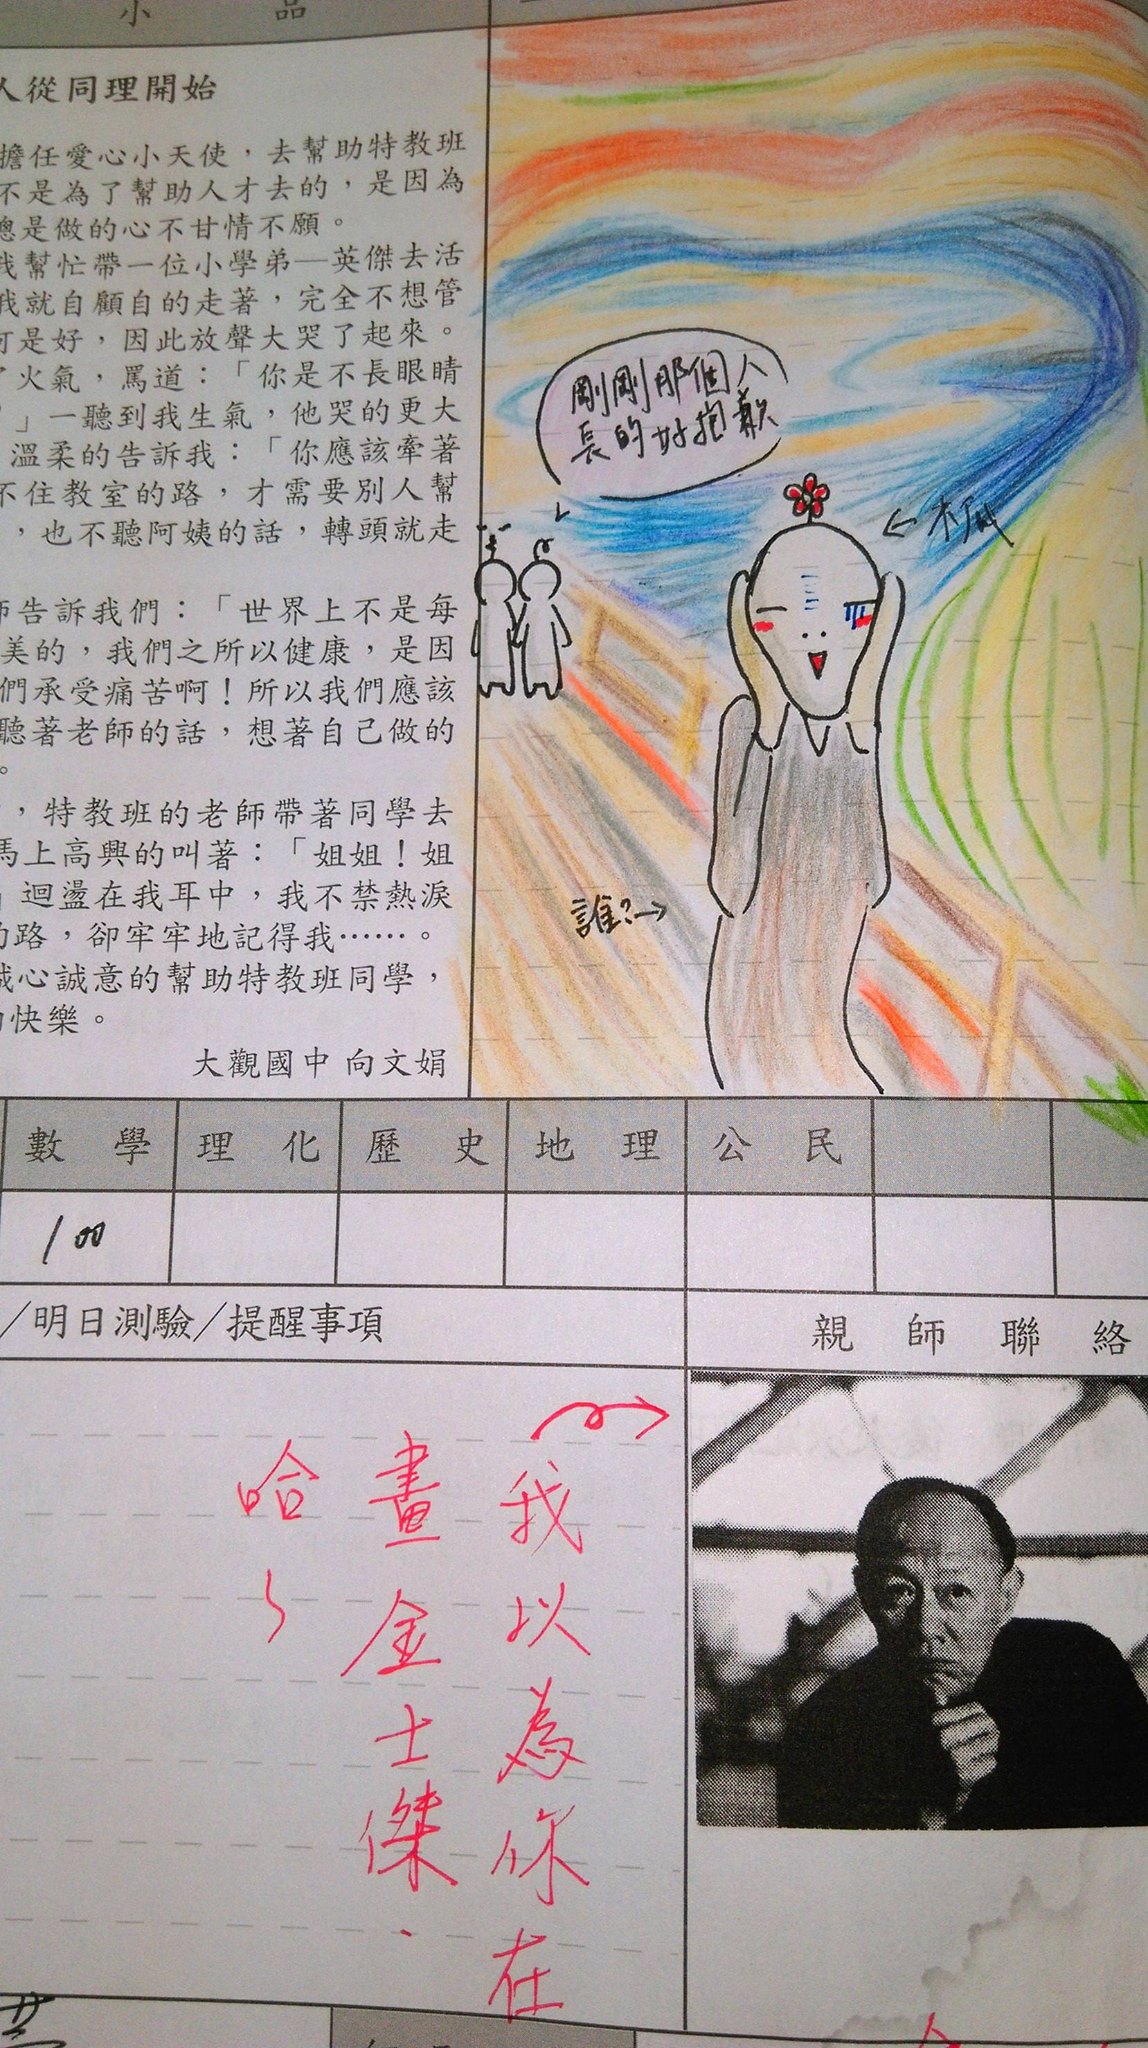 小品
人從同理開始
擔任愛心小天使，去幫助特教班
不是為了幫助人才去的，是因為
總是做的心不甘情不願。
我幫忙帶一位小學弟—英傑去活
我就自顧自的走著，完全不想管
可是好，因此放聲大哭了起來。
了火氣，罵道：「你是不長眼睛
」一聽到我生氣，他哭的更大
溫柔的告訴我：「你應該牽著
不住教室的路，才需要別人幫
，也不聽阿姨的話，轉頭就走
師告訴我們：「世界上不是每
美的，我們之所以健康，是因
們承受痛苦啊！所以我們應該
聽著老師的話，想著自己做的
。
，特教班的老師帶著同學去
馬上高興的叫著：「姐姐！姐
」迴盪在我耳中，我不禁熱淚
的路，卻牢牢地記得我……。
誠心誠意的幫助特教班同學，
的快樂。
大觀國中 向文娟
剛剛那個人
長的好抱歉
←木瓜
誰?→
數學 理化 歷史 地理 公民
100
／明日測驗／提醒事項
親師聯絡
我以為你在
畫金士傑.
哈~